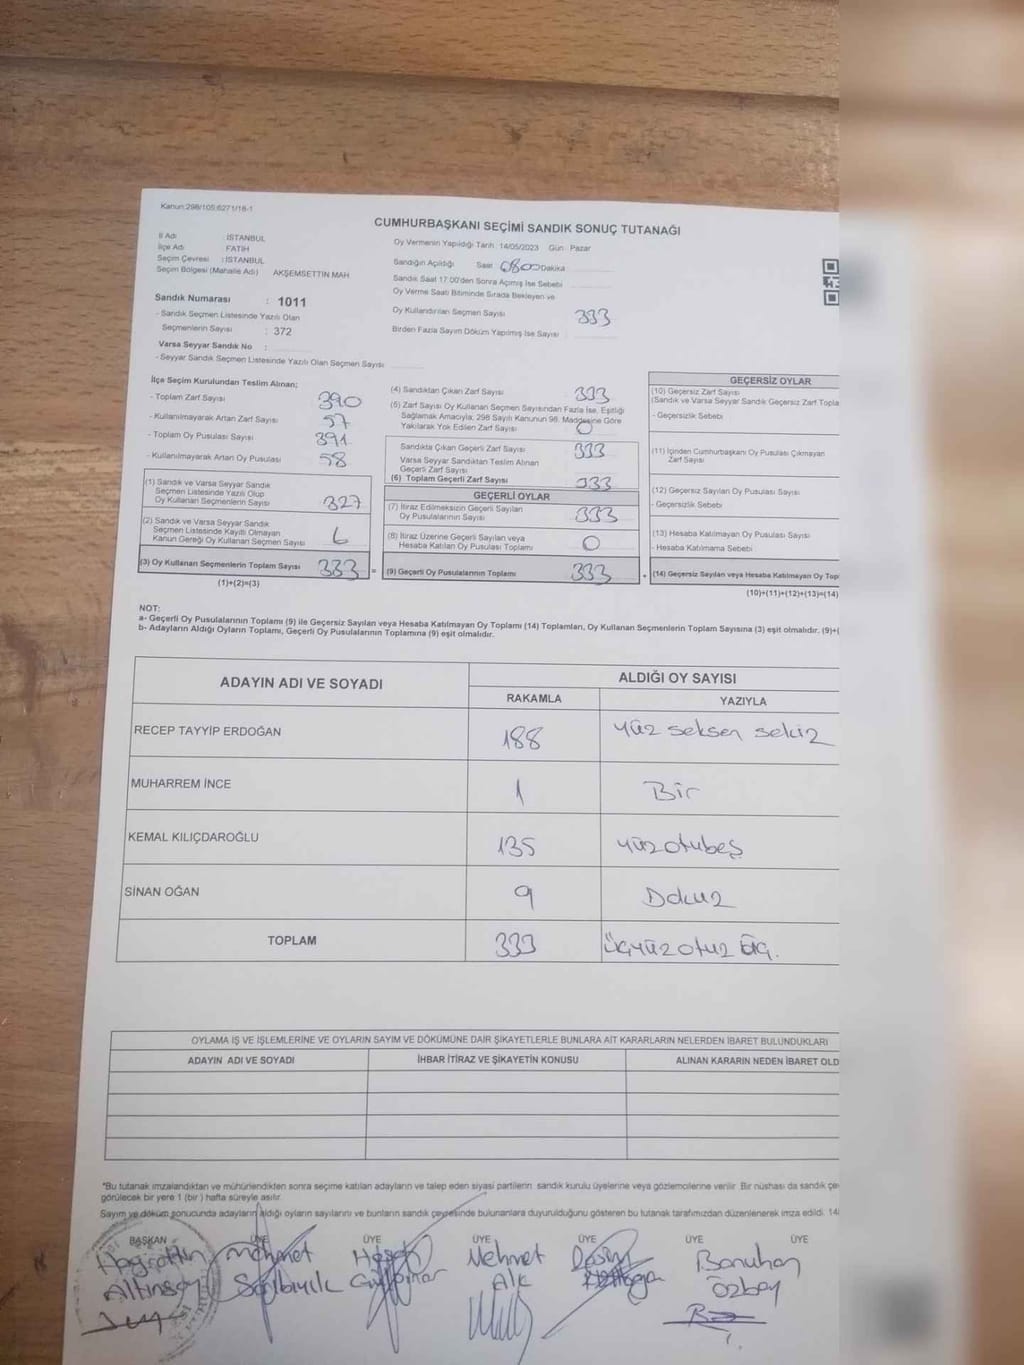 Kanun:298/105;6271/18-1
CUMHURBAŞKANI SEÇİMİ SANDIK SONUÇ TUTANAĞI
İl Adı : İSTANBUL
İlçe Adı : FATİH
Seçim Çevresi : İSTANBUL
Seçim Bölgesi (Mahalle Adı) AKŞEMSETTİN MAH
Sandık Numarası : 1011
- Sandık Seçmen Listesinde Yazılı Olan
Seçmenlerin Sayısı : 372
Varsa Seyyar Sandık No :
- Seyyar Sandık Seçmen Listesinde Yazılı Olan Seçmen Sayısı
Oy Vermenin Yapıldığı Tarih: 14/05/2023 Gün: Pazar
Sandığın Açıldığı Saat 0800 Dakika
Sandık Saat 17:00'den Sonra Açılmış İse Sebebi
Oy Verme Saati Bitiminde Sırada Bekleyen ve
Oy Kullandırılan Seçmen Sayısı 333
Birden Fazla Sayım Döküm Yapılmış İse Sayısı
İlçe Seçim Kurulundan Teslim Alınan;
- Toplam Zarf Sayısı 390
- Kullanılmayarak Artan Zarf Sayısı 57
- Toplam Oy Pusulası Sayısı 391
- Kullanılmayarak Artan Oy Pusulası 58
(1) Sandık ve Varsa Seyyar Sandık
Seçmen Listesinde Yazılı Olup
Oy Kullanan Seçmenlerin Sayısı 327
(2) Sandık ve Varsa Seyyar Sandık
Seçmen Listesinde Kayıtlı Olmayan
Kanun Gereği Oy Kullanan Seçmen Sayısı 6
(3) Oy Kullanan Seçmenlerin Toplam Sayısı 333 =
(1)+(2)=(3)
(4) Sandıktan Çıkan Zarf Sayısı 333
(5) Zarf Sayısı Oy Kullanan Seçmen Sayısından Fazla İse, Eşitliği
Sağlamak Amacıyla; 298 Sayılı Kanunun 98. Maddesine Göre
Yakılarak Yok Edilen Zarf Sayısı 0
Sandıkta Çıkan Geçerli Zarf Sayısı 333
Varsa Seyyar Sandıktan Teslim Alınan
Geçerli Zarf Sayısı
(6) Toplam Geçerli Zarf Sayısı 333
GEÇERLİ OYLAR
(7) İtiraz Edilmeksizin Geçerli Sayılan
Oy Pusulalarının Sayısı 333
(8) İtiraz Üzerine Geçerli Sayılan veya
Hesaba Katılan Oy Pusulası Toplamı 0
(9) Geçerli Oy Pusulalarının Toplamı 333 +
GEÇERSİZ OYLAR
(10) Geçersiz Zarf Sayısı
(Sandık ve Varsa Seyyar Sandık Geçersiz Zarf Topla
- Geçersizlik Sebebi
(11) İçinden Cumhurbaşkanı Oy Pusulası Çıkmayan
Zarf Sayısı
(12) Geçersiz Sayılan Oy Pusulası Sayısı
- Geçersizlik Sebebi
(13) Hesaba Katılmayan Oy Pusulası Sayısı
- Hesaba Katılmama Sebebi
(14) Geçersiz Sayılan veya Hesaba Katılmayan Oy Top
(10)+(11)+(12)+(13)=(14)
NOT:
a- Geçerli Oy Pusulalarının Toplamı (9) ile Geçersiz Sayılan veya Hesaba Katılmayan Oy Toplamı (14) Toplamları, Oy Kullanan Seçmenlerin Toplam Sayısına (3) eşit olmalıdır. (9)+(
b- Adayların Aldığı Oyların Toplamı, Geçerli Oy Pusulalarının Toplamına (9) eşit olmalıdır.
ADAYIN ADI VE SOYADI ALDIĞI OY SAYISI
RAKAMLA YAZIYLA
RECEP TAYYİP ERDOĞAN 188 Yüz seksen sekiz
MUHARREM İNCE 1 Bir
KEMAL KILIÇDAROĞLU 135 yüzotubeş
SİNAN OĞAN 9 Dokuz
TOPLAM 333 üçyüzotuz üç.
OYLAMA İŞ VE İŞLEMLERİNE VE OYLARIN SAYIM VE DÖKÜMÜNE DAİR ŞİKAYETLERLE BUNLARA AİT KARARLARIN NELERDEN İBARET BULUNDUKLARI
ADAYIN ADI VE SOYADI İHBAR İTİRAZ VE ŞİKAYETİN KONUSU ALINAN KARARIN NEDEN İBARET OLD
*Bu tutanak imzalandıktan ve mühürlendikten sonra seçime katılan adayların ve talep eden siyasi partilerin sandık kurulu üyelerine veya gözlemcilerine verilir. Bir nüshası da sandık çe
görülecek bir yere 1 (bir) hafta süreyle asılır.
Sayım ve döküm sonucunda adayların aldığı oyların sayılarını ve bunların sandık çevresinde bulunanlara duyurulduğunu gösteren bu tutanak tarafımızdan düzenlenerek imza edildi. 14
BAŞKAN ÜYE ÜYE ÜYE ÜYE ÜYE ÜYE
Hayrettin Mehmet Mehmet Banuhan
Altınsoy Alk Özbay